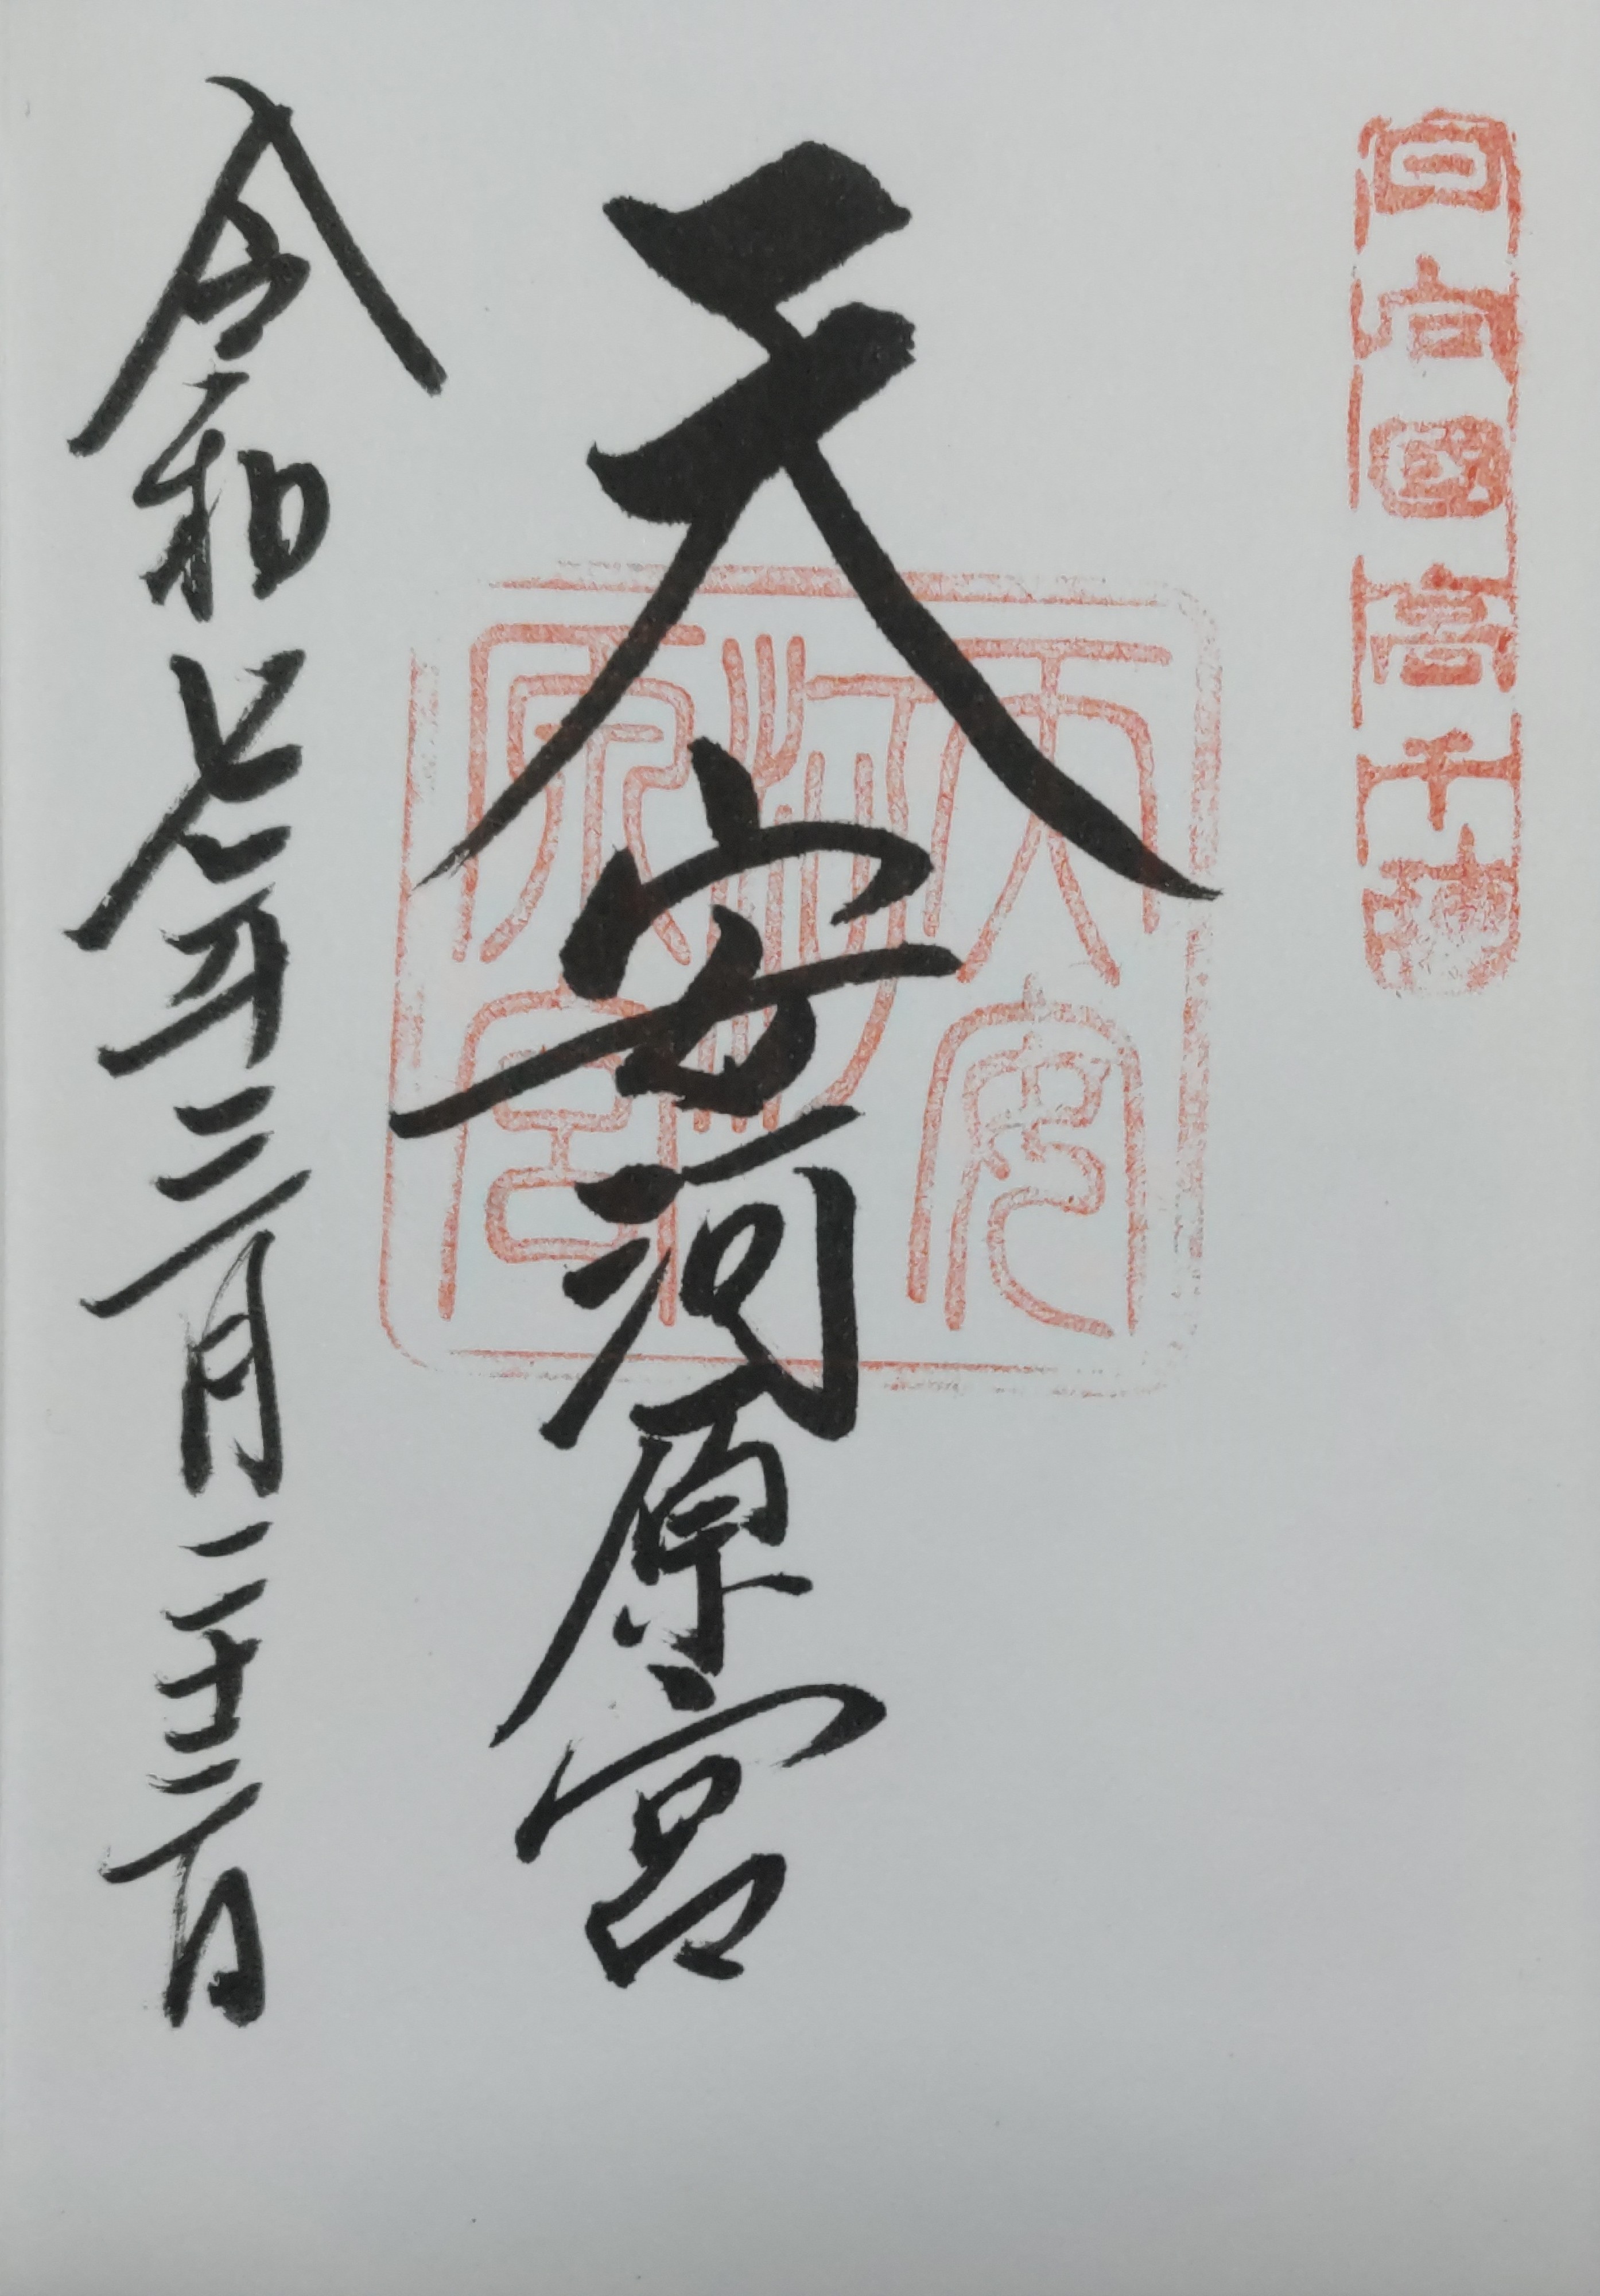 日向國高千穂
天安河原宮
天安河原宮
令和七年三月二十三日